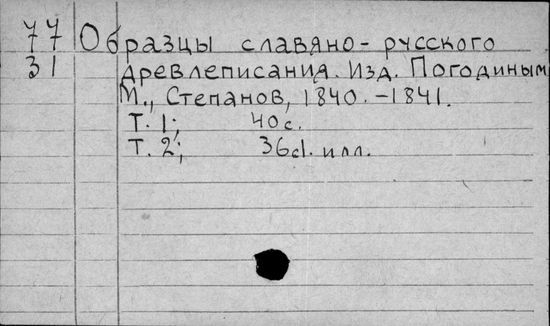 77 Образцы славяно-русского
31 древлеписания. Изд. Погодиным
М., Степанов, 1840.-1841.
Т. 1; 40 с.
Т. 2; 36 с. илл.